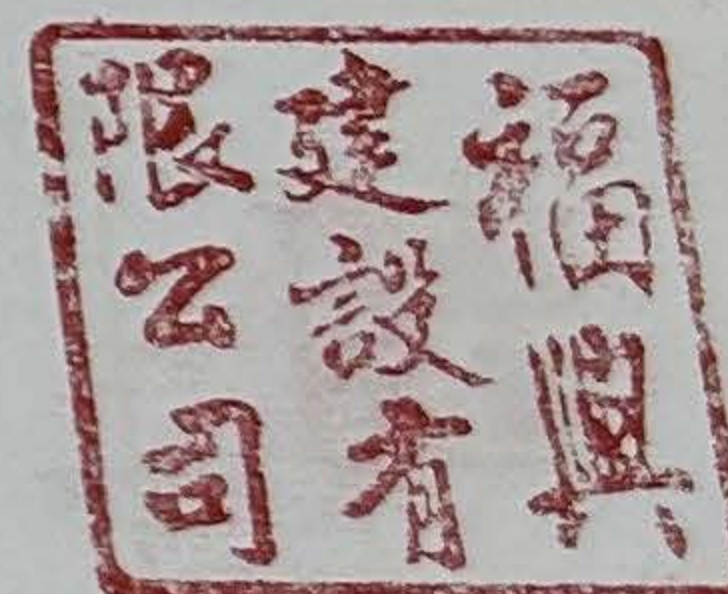 福興
建設有
限公司